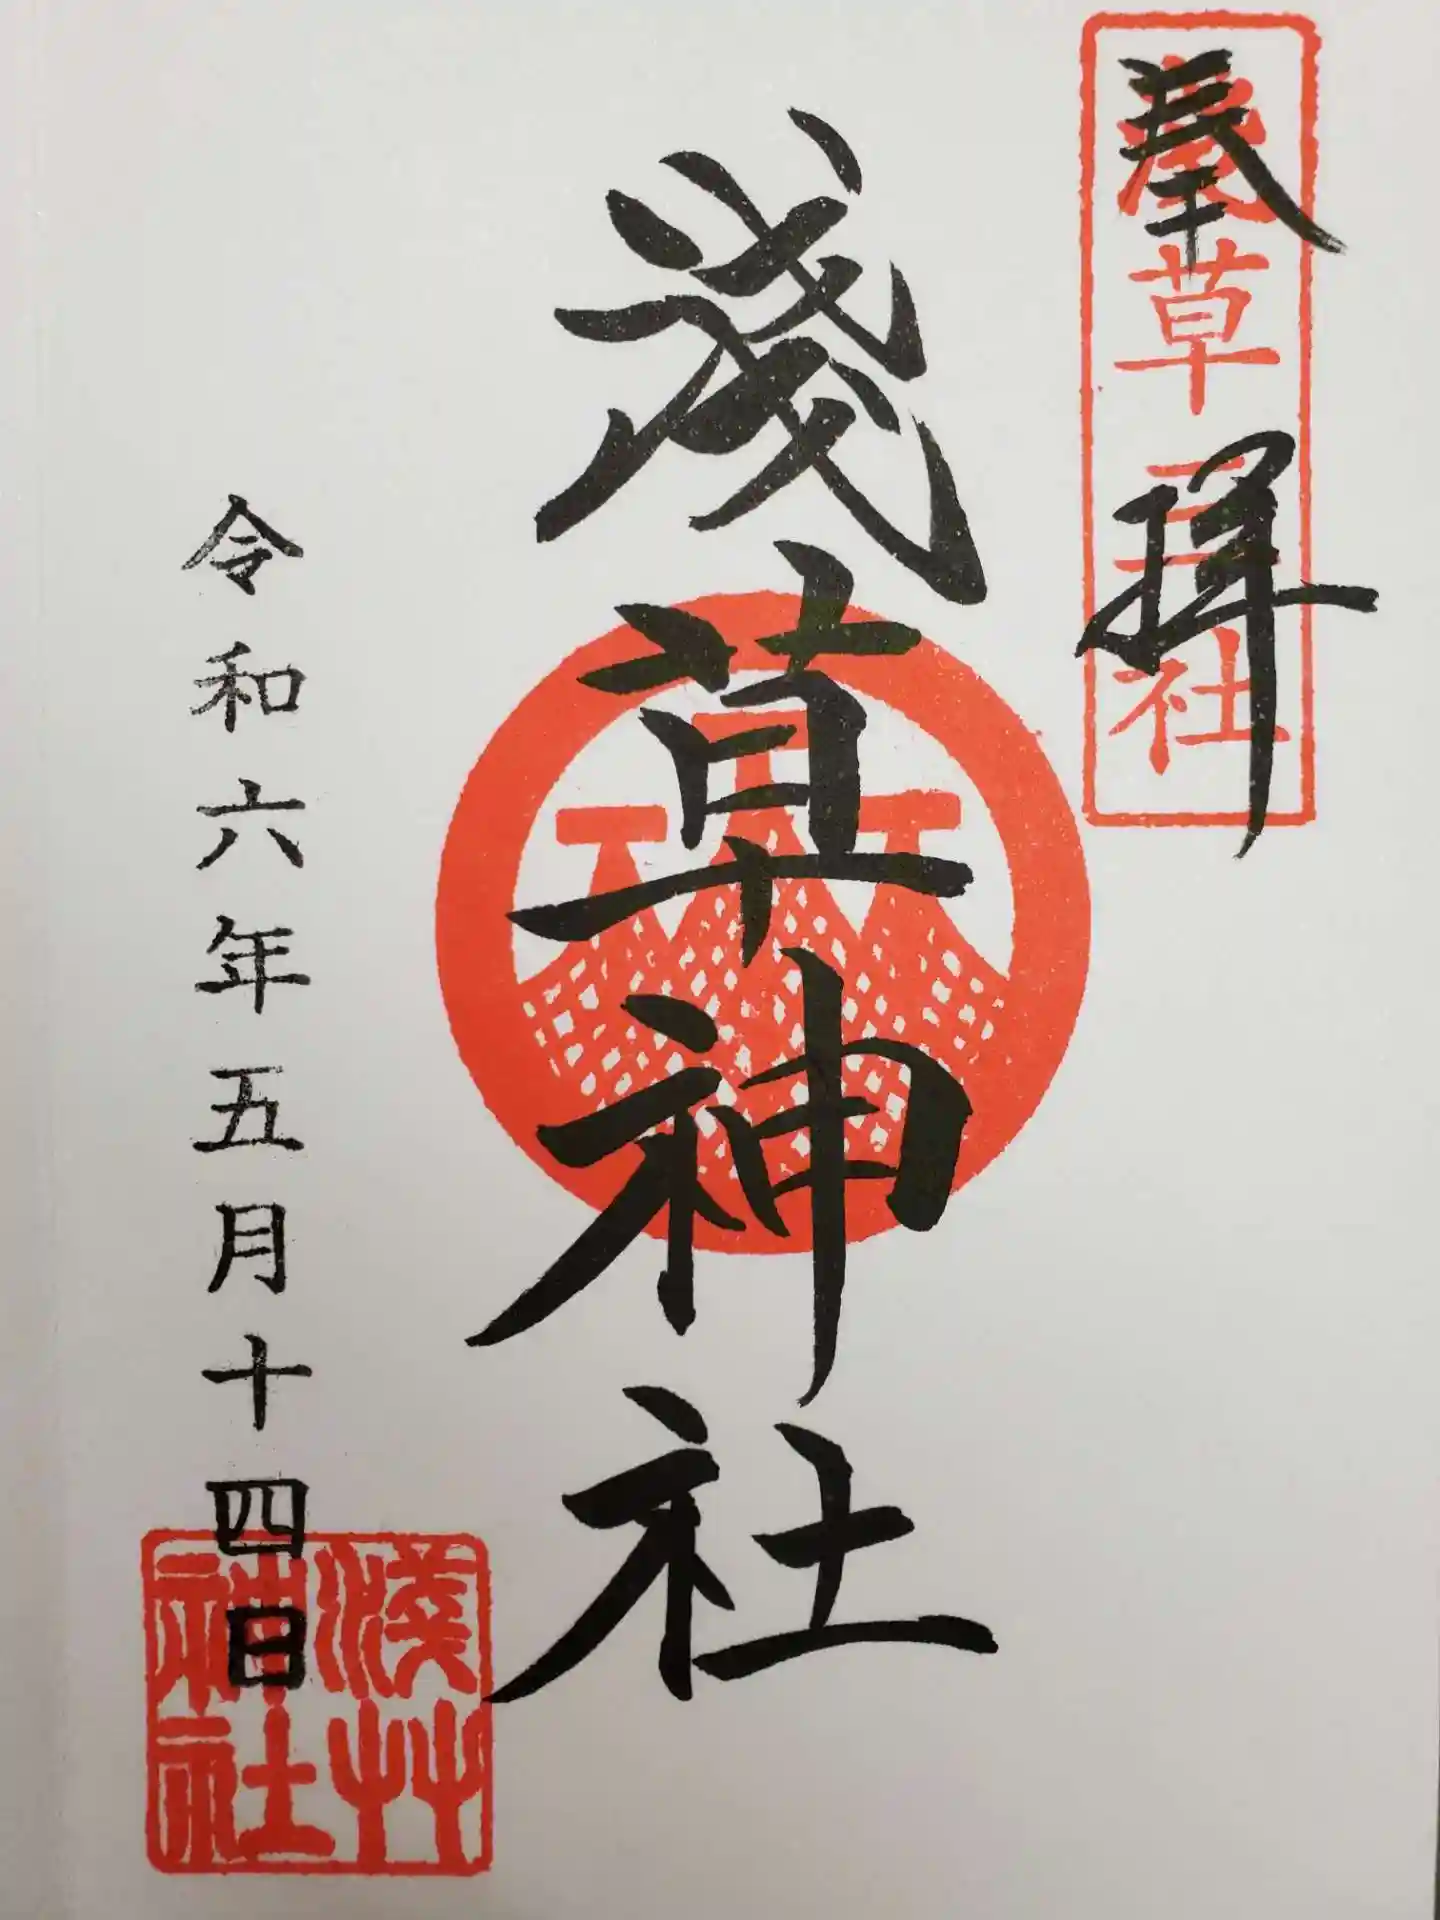 奉拝
浅草三社
淺草神社
令和六年五月十四日
淺艸
神社